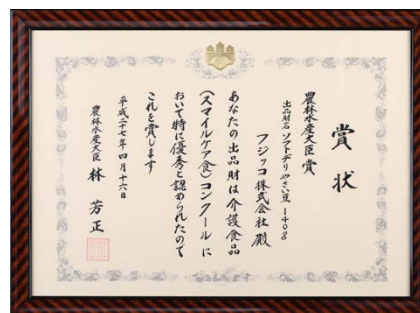 賞状
農林水産大臣賞
出品財名 ソフトデリやさい豆 1400g
フジッコ株式会社 殿
あなたの出品財は介護食品
(スマイルケア食)コンクールに
おいて特に優秀と認められたので
これを賞します
平成二十七年四月十六日
農林水産大臣 林 芳正